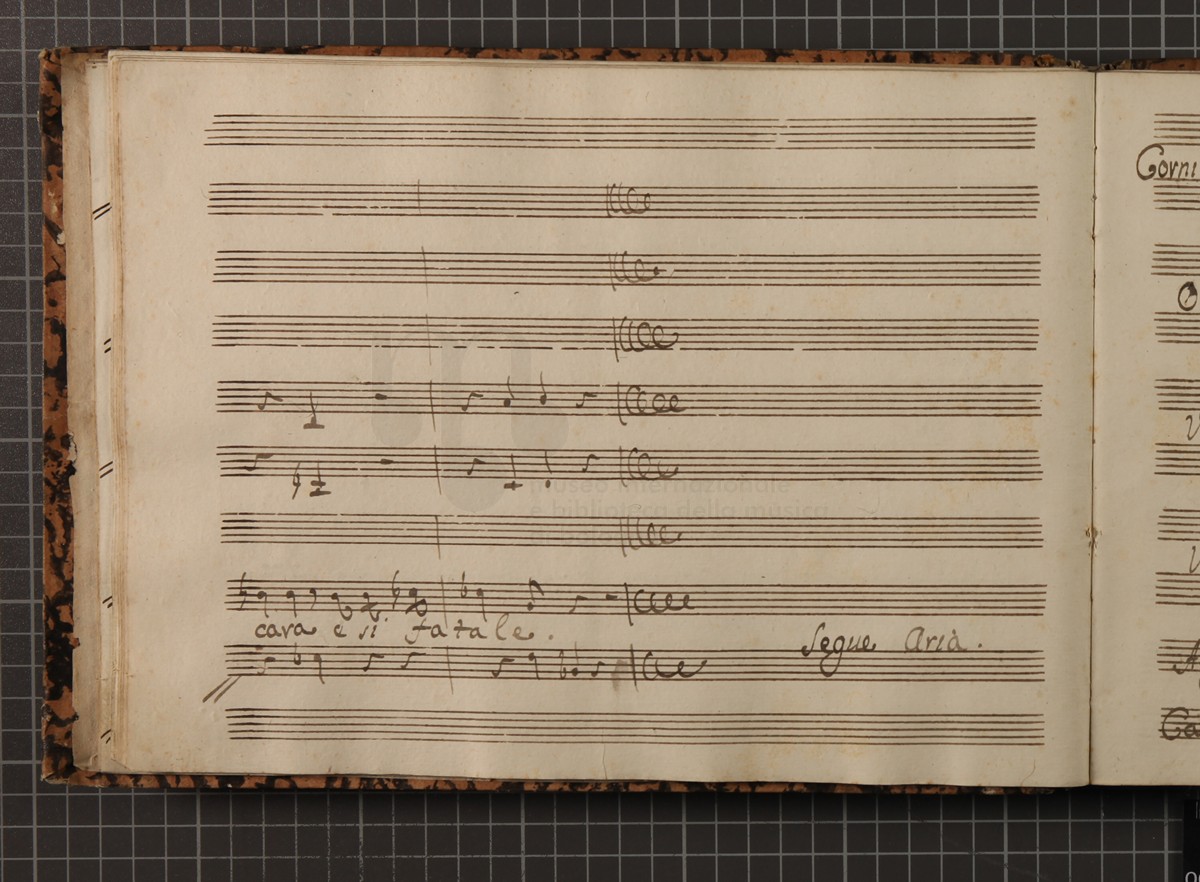 Corni
museo internazionale
e biblioteca della musica
cara e si fatale.
Segue Aria.